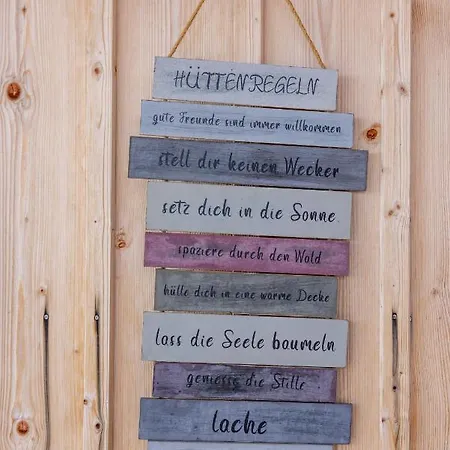 HÜTTENREGELN
gute Freunde sind immer willkommen
stell dir keinen Wecker
setz dich in die Sonne
spaziere durch den Wald
hülle dich in eine warme Decke
lass die Seele baumeln
geniesse die Stille
lache